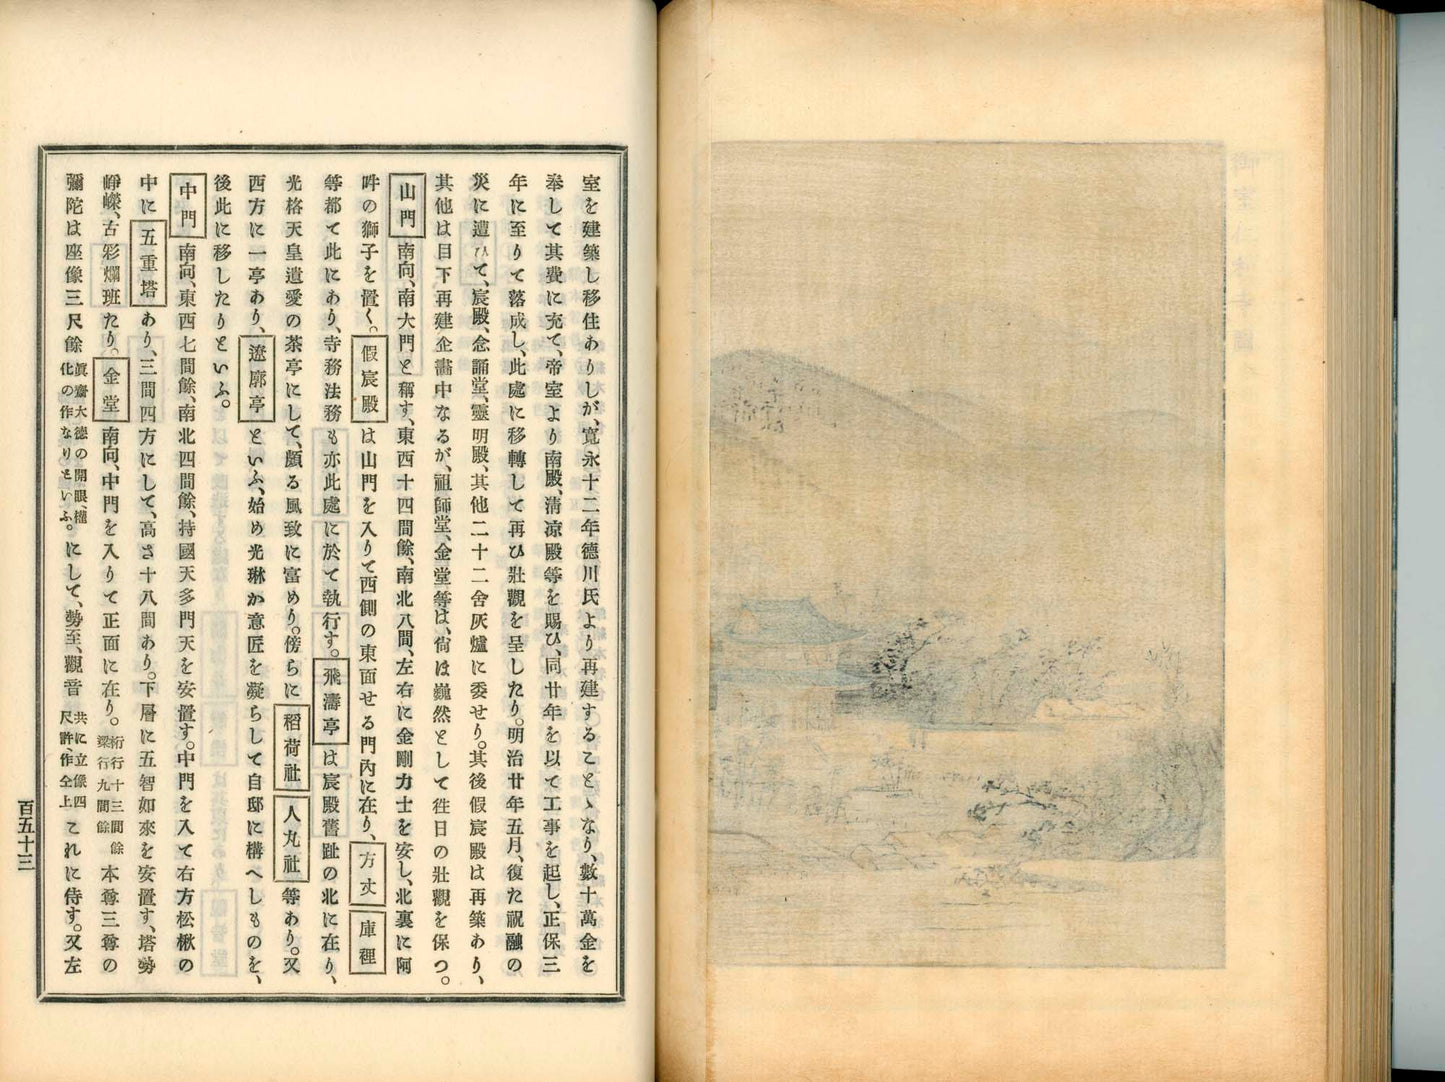 室を建築し移住ありしが、寛永十二年德川氏より再建することゝなり、數十萬金を
奉して其費に充て、帝室より南殿、淸凉殿等を賜ひ、同廿年を以て工事を起し、正保三
年に至りて落成し、此處に移轉して再ひ壯觀を呈したり。明治廿年五月、復た祝融の
災に遭ひて、宸殿、念誦堂、靈明殿、其他二十二舍灰爐に委せり。其後假宸殿は再築あり、
其他は目下再建企畫中なるが、祖師堂、金堂等は、尙ほ巍然として徃日の壯觀を保つ。
山門 南向、南大門と稱す、東西十四間餘、南北八間、左右に金剛力士を安し、北裏に阿
吽の獅子を置く。假宸殿は山門を入りて西側の東面せる門內に在り、方丈 庫裡
等都て此にあり、寺務法務も亦此處に於て執行す。飛濤亭は宸殿舊趾の北に在り、
光格天皇遺愛の茶亭にして、頗る風致に富めり。傍らに稻荷社 人丸社等あり。又
西方に一亭あり、遼廓亭といふ、始め光琳か意匠を凝らして自邸に構へしものを、
後此に移したりといふ。
中門 南向、東西七間餘、南北四間餘、持國天多門天を安置す。中門を入て右方松楸の
中に五重塔あり、三間四方にして、高さ十八間あり。下層に五智如來を安置す、塔勢
崢嶸、古彩爛班たり。金堂 南向、中門を入りて正面に在り。桁行十三間餘梁行九間餘 本尊三尊の
彌陀は座像三尺餘眞齋大德の開眼、權化の作なりといふ。にして、勢至、觀音共に立像四尺許、作仝上 これに侍す。又左
百五十三